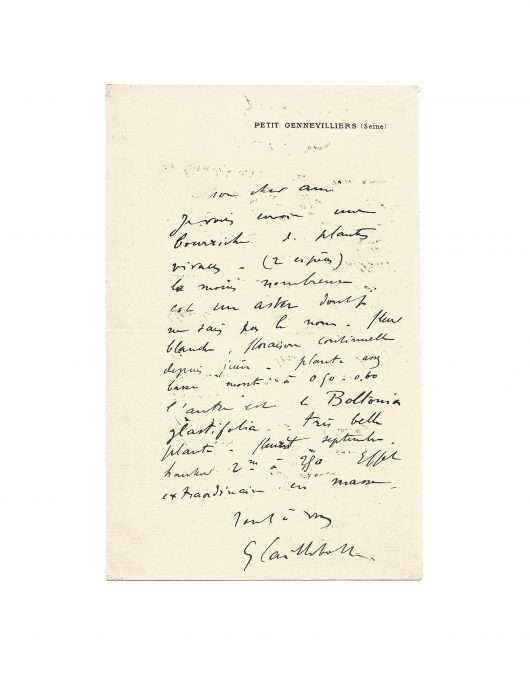 PETIT GENNEVILLIERS (Seine)
mon cher ami
Je vous envoie une
bourriche de plantes
vivaces - (2 espèces)
la moins nombreuse
est un aster dont je
ne sais pas le nom. fleur
blanche, floraison continuelle
depuis juin - plante assez
basse montant à 0.50 à 0.60
l'autre est le Boltonia
glastifolia. très belle
plante. fleurit septembre.
hauteur 2m à 2,50 Effet
extraordinaire en masse.
Tout à vous
G Caillebotte